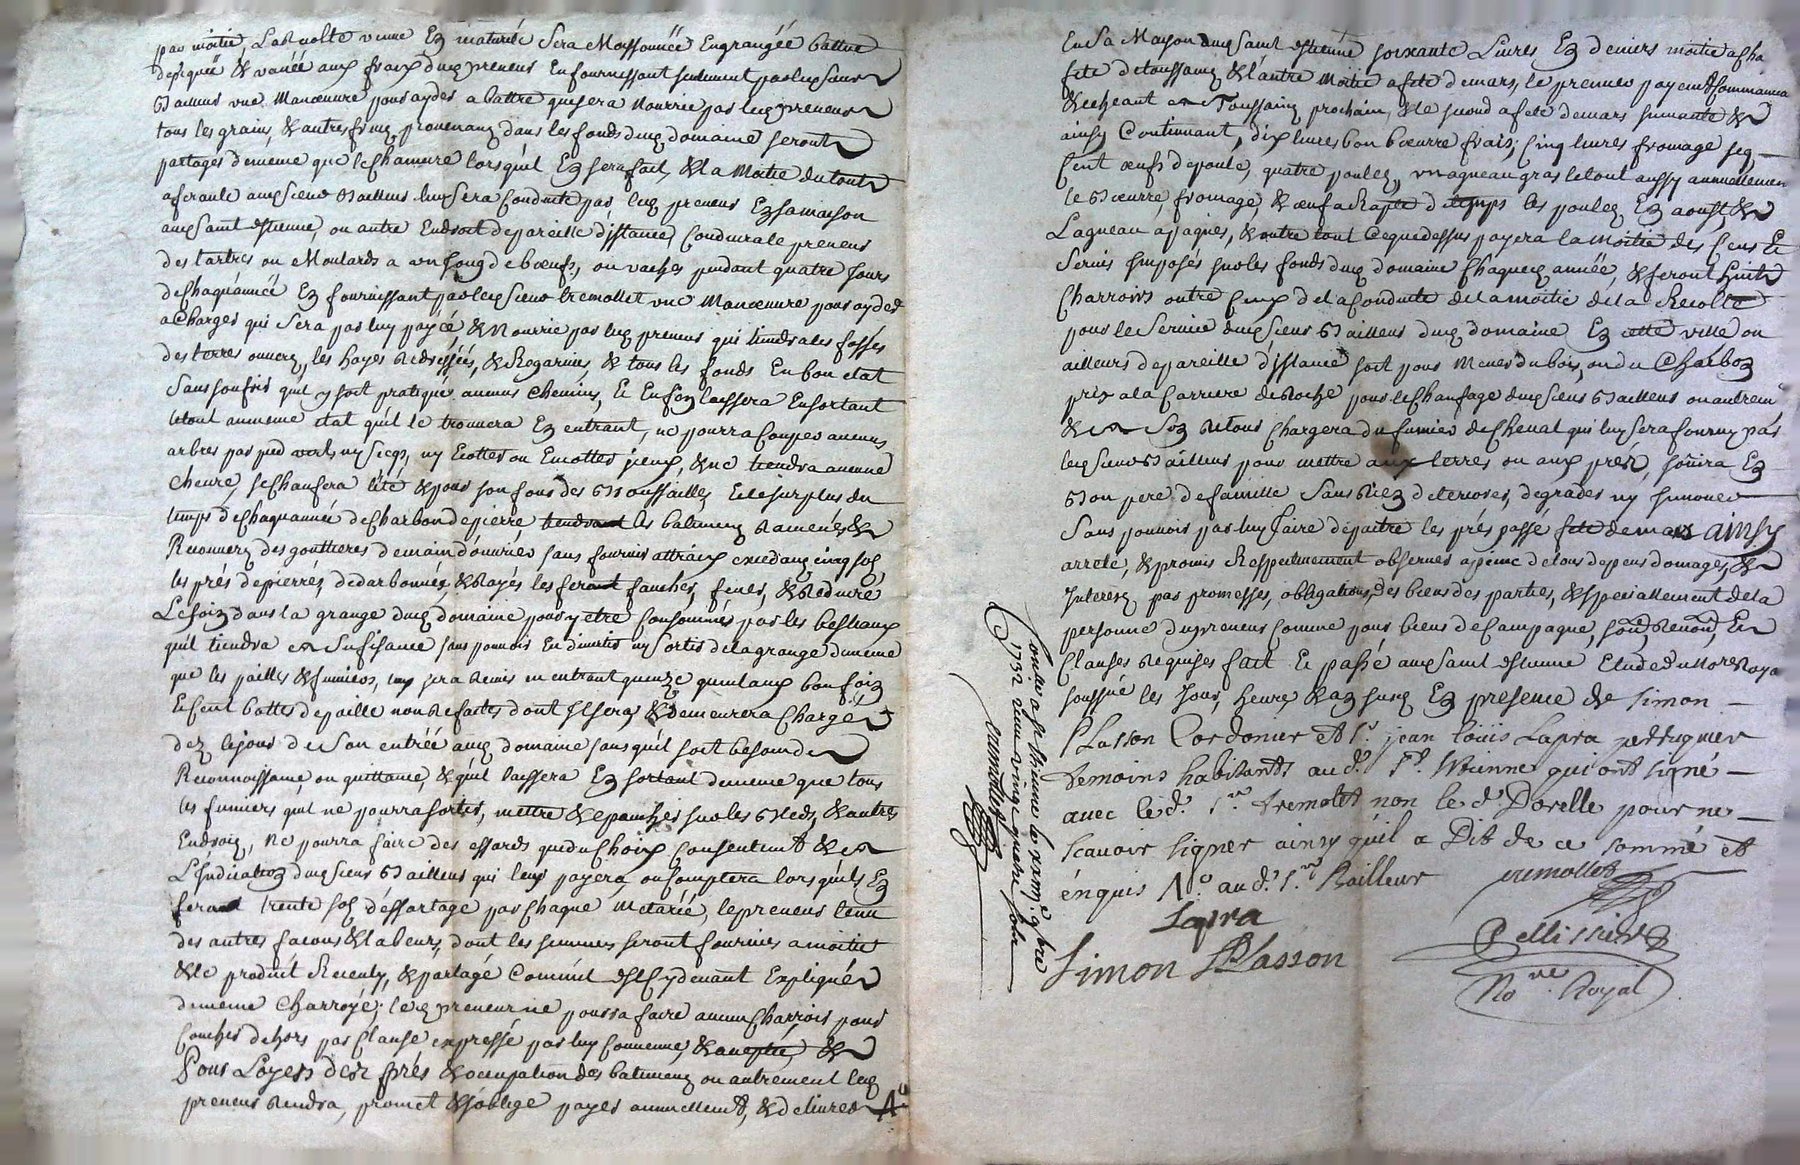 par moitié, La Recolte venue En maturité Sera Moissonnée Engrangée battue
depiquée & vanée aux fraix dud preneur En fournissant seulement par led Sieur
Bailleur une Manœuvre pour ayder a battre qui sera Nourrie par led preneur
tous les grains, & autres fruits provenants dans les fonds dud domaine seront
partagés de meme que le Chanvre lors qu'il En sera fait, & la Moitié du tout
aferante aud Sieur Bailleur luy sera Conduite par led preneur En sa maison
aud Saint Etienne, ou autre Endroit de pareille distance, Conduira le preneur
des tartres ou Moulards a un joug de bœufs, ou vaches pendant quatre Jours
de Chaque année En fournissant par led Sieur tremollet une Manœuvre pour ayder
a Charger qui Sera par luy payée, & Nourrie par led preneur qui tiendra les fossés
des terres ouverts, les hayes Redressées, & Regarnies, & tous les fonds En bon etat
Sans soufrir quil y soit pratiqué aucuns Chemins, Et En fin laissera En sortant
le tout au meme état qu'il le trouvera En entrant, ne pourra Couper aucuns
arbres par pied verts, ny secqs, ny Ecotter ou Emotter jceux, & ne tiendra aucune
Cheure, se Chaufera l'été & pour son four des Broussailles Et le surplus du
temps de Chaque année de Charbon de pierre, tiendra les batiments &
Recouverts des gouttieres de main d'ouvrier sans fournir attraits excedants cinq sols
les prés depierrés, dedarbonnés, & Rayés les fera faucher, fener, & Reduire
Le foin dans la grange dud domaine pour y etre Consommés par les bestiaux
quil tiendra en Sufisance sans pouvoir En divertir ny sortir de la grange de meme
que les pailles & fumiers, luy sera Remis en entrant quinze quintaux bon foin
Et Cent bottes de paille non Refaites dont Il sera & demeurera Chargé
dez le jour de Son entrée aud domaine sans qu'il soit besoin de
Reconnoissance, ou quittance, & qu'il laissera En sortant de meme que tous
les fumiers quil ne pourra sortir, mettre & epancher sur les Bleds, & autres
Endroits, Ne pourra faire des essards que du Choix Consentement & en
L'Indication dud Sieur Bailleur qui luy payera, ou Comptera lors qu'il En
fera trente sols d'essartage par Chaque Metariée, le preneur tenu
des autres façons & labeurs, dont les semences seront fournies a moitié
& le produit Receuly, & partagé Comme il est Cy devant Expliqué
de meme Charroyé; led preneur ne pourra faire aucun Charroir pour
Coucher dehors par Clause expressé par luy Convenue, & acceptée, &
Pour Loyer des prés & occupation des batiments ou autrement led
preneur Rendra, promet & s'oblige payer annuellement, & delivrer Ao
En Sa Maison aud Saint Etienne soixante Livres En deniers moitié a cha
fete de toussaint & l'autre Moitié a fete de mars, le premier payement Commancera
& echeant a Toussaint prochain, & le second a fete de mars suivante &
ainsy Continuant, dix livres bon bœurre frais, Cinq livres fromage seq
Cent œufs de poule, quatre poulets, un agneau gras le tout aussy annuellement
le Bœurre, fromage, & œufs temps les poulets En aoust, &
L'agneau a paques, & outre tout Ce que dessus payera la Moitié des Cens Et
Servis Imposés sur les fonds dud domaine Chaque année, & feront huit
Charroirs outre Ceux de la Conduite de la moitié de la Recolte
pour le Service dud Sieur Bailleur dud domaine En cette ville ou
ailleurs de pareille distance soit pour Mener du bois, ou du Charbon
pris a la Carriere de Roche pour le Chaufage dud Sieur Bailleur ou autrem
& en Son Retour Chargera du fumier de Cheval qui luy sera fourny par
led Sieur Bailleur pour mettre aux terres ou aux prés, Jouira En
Bon pere de famille Sans Rien deteriorer, degrader ny Innover
Sans pouvoir par luy faire depaitre les prés passé fete de mars ainsy
arreté, & promis Respectivement observer a peine de tous depens domages, &
Interets par promesses, obligations, des biens des parties, & specialement de la
personne du preneur Comme pour biens de Campagne, soum Renon, Et
Clauses Requises fait Et passé aud Saint Etienne Etude du No.re Royal
soussigné les Jour, heure & an susd En presence de Simon
Plasson Cordonier et sr. jean louis Lapra perruquier
temoins habitants aud. St. Etienne qui ont signé
avec led. sr. tremolet non le d. Dorelle pour ne
scavoir signer ainsy qu'il a Dit de ce sommé et
énquis Ao. aud. sr. Bailleur
tremollet
Lapra
Simon Plasson
Pellissier
No.re Royal
Controllé a St. Etienne le 9bre
1732 Reçu vingt quatre sols